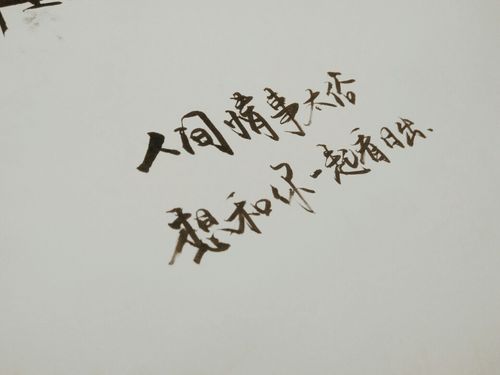 人间情事太否
想和你一起看日出、